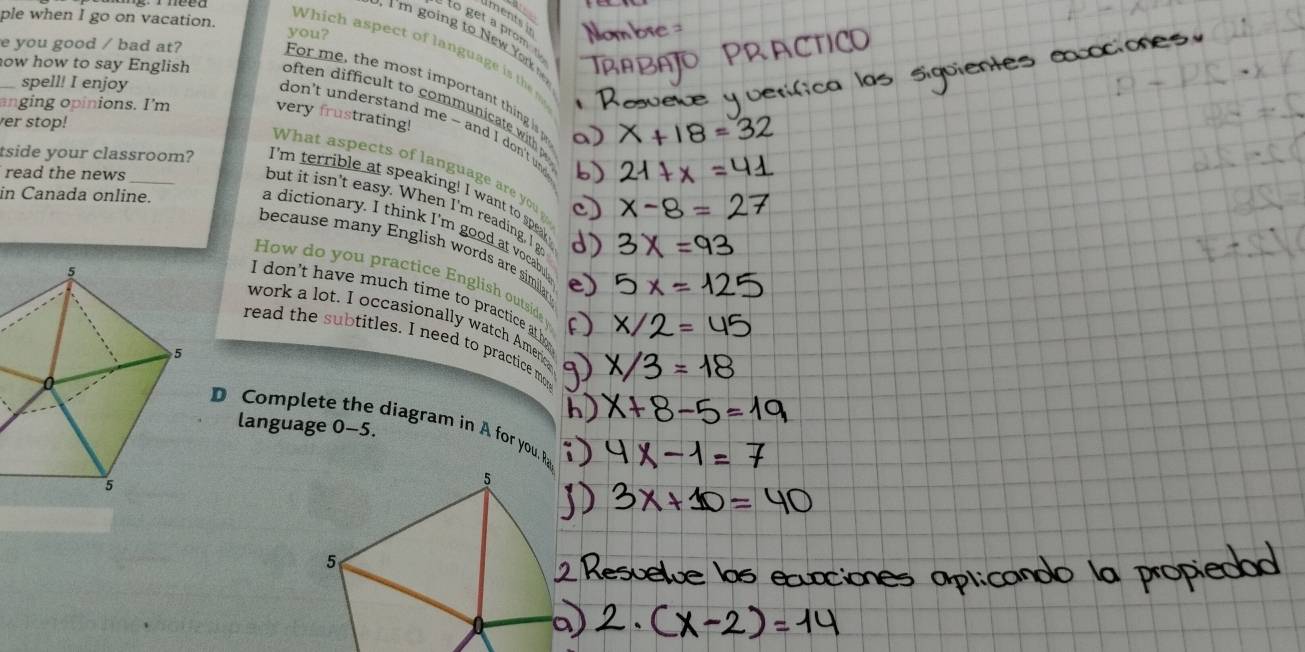 ple when I go on vacation.
e you good / bad at?
ow how to say English
spell! I enjoy
anging opinions. I'm
er stop!
tside your classroom?
read the news
in Canada online.
5
5
0
5
to get a prom
I'm going to New York
Which aspect of language is the
you?
For me, the most important thing is
often difficult to communicate with
don't understand me – and I don't
very frustrating!
What aspects of language are you
I'm terrible at speaking! I want to speak
but it isn't easy. When I'm reading, I go
a dictionary. I think I'm good at vocabular
because many English words are similar
How do you practice English outside
I don't have much time to practice at
work a lot. I occasionally watch American
read the subtitles. I need to practice more
D Complete the diagram in A for you.
language 0–5.
5
5
0
Nombre=
TRABAJO PRACTICO
1 Resuelve y verifica las siguientes ecuaciones.
a) x + 18 = 32
b) 21 + x = 41
c) x - 8 = 27
d) 3x = 93
e) 5x = 125
f) x/2 = 45
g) x/3 = 18
h) x + 8 - 5 = 19
i) 4x - 1 = 7
j) 3x + 10 = 40
2 Resuelve las ecuaciones aplicando la propiedad
a) 2. (x-2) = 14